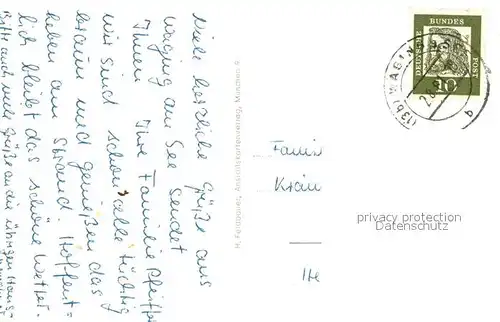 Viele herzliche Grüße aus
Waging am See sendet
Ihnen Ihre Familie Pfeiffer
wir sind schon alle tüchtig
braun und genießen das
Leben am Strand. Hoffent=
lich bleibt das schöne Wetter.
Bitte auch viele Grüße an die übrigen Haus=
H. Feldbauer, Ansichtskartenverlag, München 9
DEUTSCHE
BUNDES
POST
10
(13b) WAGING
Famil
Kräu
He
privacy protection
Datenschutz